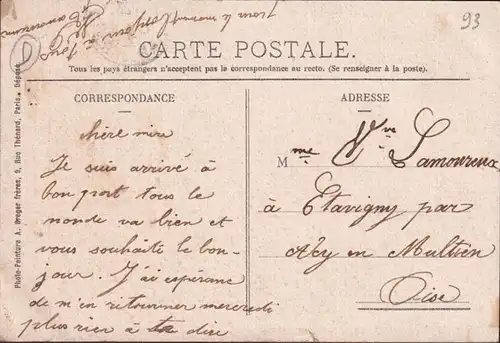 93
D
CARTE POSTALE.
Tous les pays étrangers n'acceptent pas la correspondance au recto. (Se renseigner à la poste).
CORRESPONDANCE
chère mère
Je suis arrivé à
bon port tous le
monde va bien et
vous souhaite le bon-
jour. J'ai espérance
de m'en retourner mercredi
plus rien à te dire
ADRESSE
Mme Vve Lamoureux
à Etavigny par
Acy en Multien
Oise
Photo-Peinture A. Breger frères, 9, Rue Thénard, Paris. Déposé